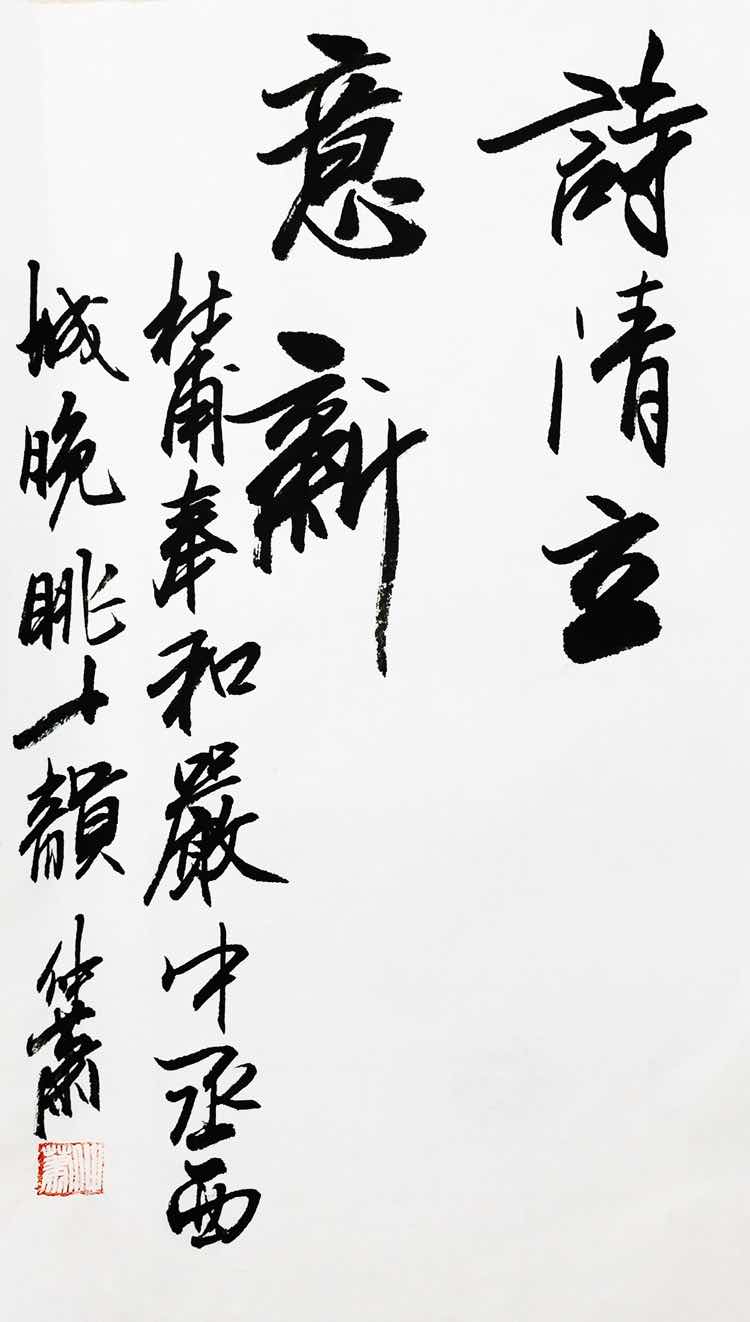 詩清立
意新
杜甫奉和嚴中丞西
城晚眺十韻 仲蕭